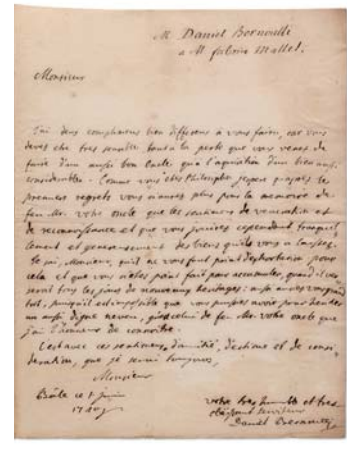 M. Daniel Bernoulli
a M. fabrice Mallet.
Monsieur
J'ai deux complimens bien differens a vous faire, car vous
devez etre tres sensible tout a la perte que vous venez de
faire d'un aussi bon oncle qu'a l'aquisition d'un bien aussi
considerable. Comme vous etes Philosophe j'espere qu'apres les
premiers regrets vous n'aurez plus pour la memoire de
feu Mr. votre oncle que les sentimens de veneration et
de reconnoissance et que vous jouirez cependant tranquil-
lement et genereusement des biens qu'il vous a laissez.
Je sai, Monsieur, qu'il ne vous faut point d'exhortation pour
cela et que vous n'etes point fait pour accumuler, quand il vous
seroit tous les jours de nouveaux heritages: aussi
tot, puisqu'il est impossible que vous puissiez avoir pour heritier
un aussi digne neveu, que celui de feu Mr. votre oncle que
j'ai l'honneur de connoitre.
C'est avec ces sentimens d'amitié, d'estime et de consi-
deration, que je serai toujours,
Monsieur
Bâle ce juin
votre tres humble et tres
obeissant serviteur
Daniel Bernoulli